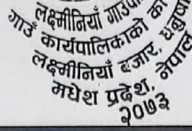 लक्ष्मीनियाँ गाउँपा
गाउँ कार्यपालिकाको का
लक्ष्मीनियाँ बजार, धनुषा
मधेश प्रदेश, नेपाल
२०७३